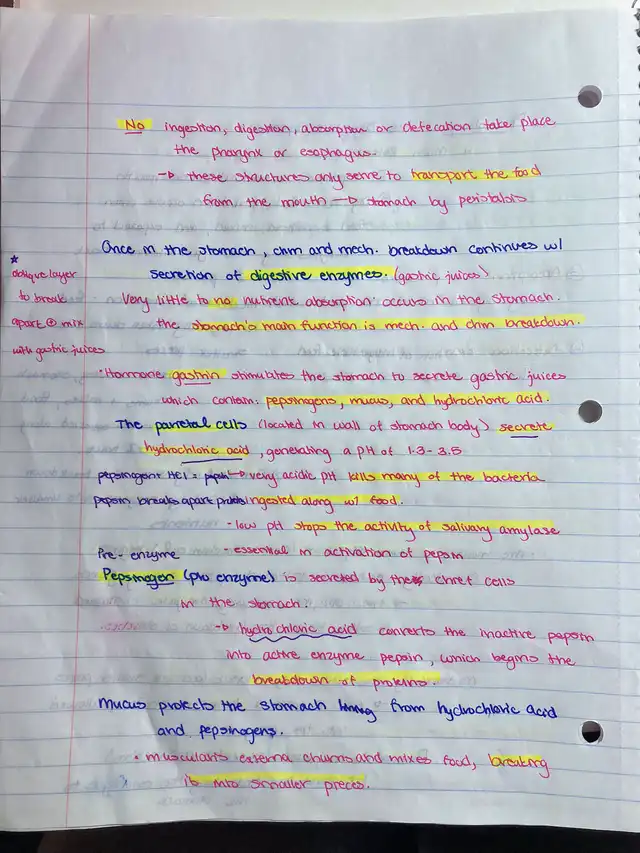 No ingestion, digestion, absorption or defecation take place
the pharynx or esophagus.
→ these structures only serve to transport the food
from the mouth → stomach by peristalsis
Once in the stomach, chm and mech. breakdown continues w/
secretion of digestive enzymes. (gastric juices)
★
oblique layer
to break
apart + mix
with gastric juices
Very little to no nutrient absorption occurs in the stomach.
the stomach's main function is mech. and chm breakdown.
• Hormone gastrin stimulates the stomach to secrete gastric juices
which contain: pepsinogens, mucus, and hydrochloric acid.
The parietal cells (located in wall of stomach body) secrete
hydrochloric acid, generating a pH of 1.3-3.5
pepsinogen+ HCl = pepsin
→ very acidic pH kills many of the bacteria
pepsin breaks apart proteins
ingested along w/ food.
- low pH stops the activity of salivary amylase
- essential in activation of pepsin
Pre-enzyme
Pepsinogen (pro enzyme) is secreted by the chief cells
in the stomach.
→ hydrochloric acid converts the inactive pepsin
into active enzyme pepsin, which begins the
breakdown of proteins.
Mucus protects the stomach lining from hydrochloric acid
and pepsinogens.
• muscularis externa churns and mixes food, breaking
it into smaller pieces.